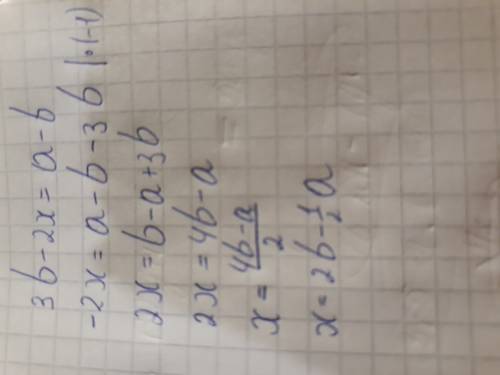 3b-2x=a-b
-2x=a-b-3b |·(-1)
2x=b-a+3b
2x=4b-a
x=\frac{4b-a}{2}
x=2b-\frac{1}{2}a